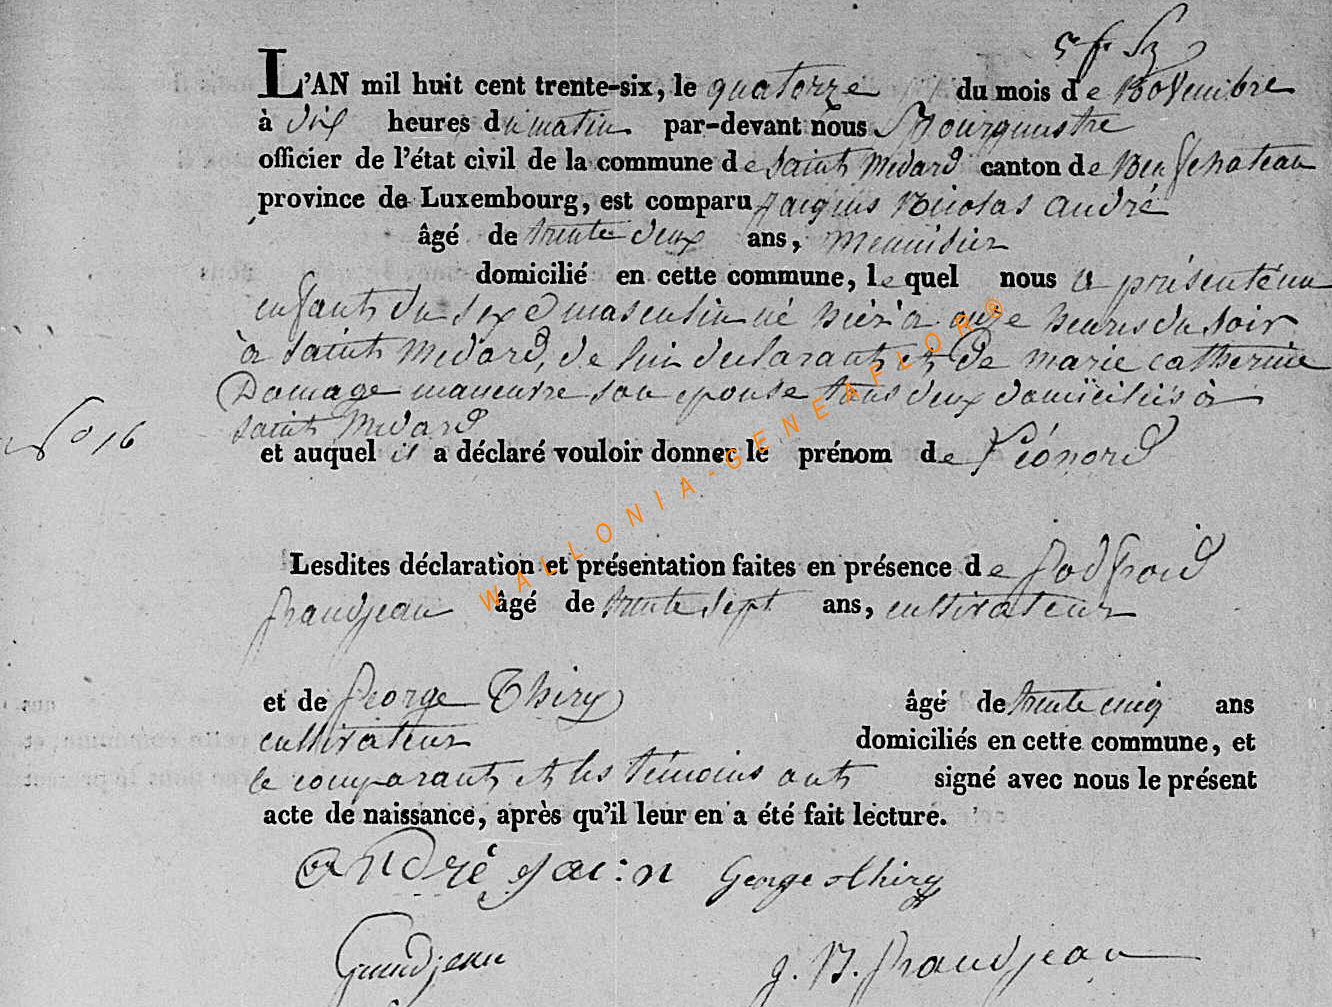 L'AN mil huit cent trente-six, le quatorze du mois de Novembre
à dix heures du matin par-devant nous Bourgmestre
officier de l'état civil de la commune de Saint Medard canton de Neufchateau
province de Luxembourg, est comparu Jacques Nicolas André
âgé de trente deux ans, menuisier
domicilié en cette commune, le quel nous a présenté un
enfant du sexe masculin né hier à onze heures du soir
à Saint Medard, de lui déclarant et de marie catherine
Damage son epouse tous deux domiciliés à
Saint Medard
N° 16
et auquel il a déclaré vouloir donner le prénom de Léonard
Lesdites déclaration et présentation faites en présence de Godfroid
Grandjean âgé de trente sept ans, cultivateur
et de George Thiry âgé de trente cinq ans
cultivateur domiciliés en cette commune, et
le comparant et les témoins ont signé avec nous le présent
acte de naissance, après qu'il leur en a été fait lecture.
André Jac:n George Thiry
Grandjean J. N. Grandjean
WALLONIA-GENEAFLOR®